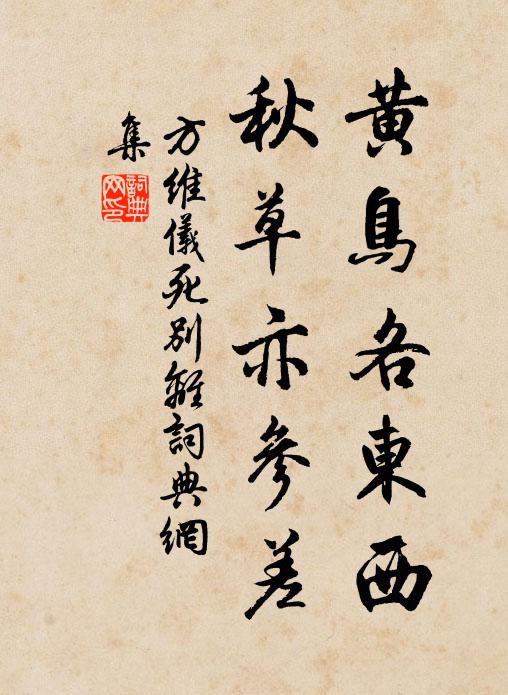 黃鳥各東西
秋草亦參差
方維儀死別離詞典網
集
詞典
网印